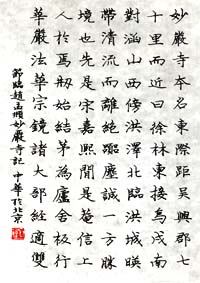 妙嚴寺本名東際距吳興郡七
十里而近曰徐林東接烏戍南
對涵山西傍洪澤北臨洪城映
帶清流而離絕囂塵誠一方勝
境也先是宋嘉熙間是菴信上
人於焉刱始結茅為廬舍板行
華嚴法華宗鏡諸大部經適雙
節臨趙孟頫妙嚴寺記 中華於北京